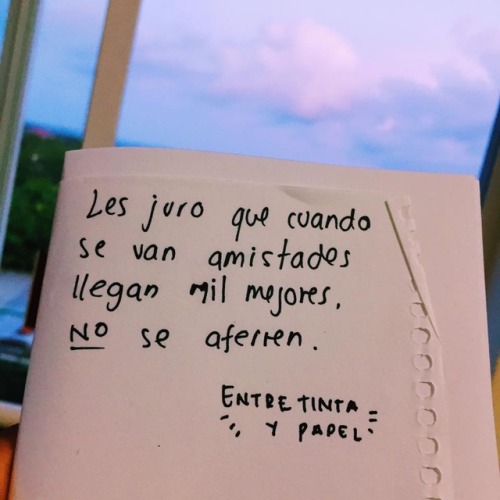 Les juro que cuando
se van amistades
llegan mil mejores.
NO se aferren.
ENTRE TINTA
Y PAPEL